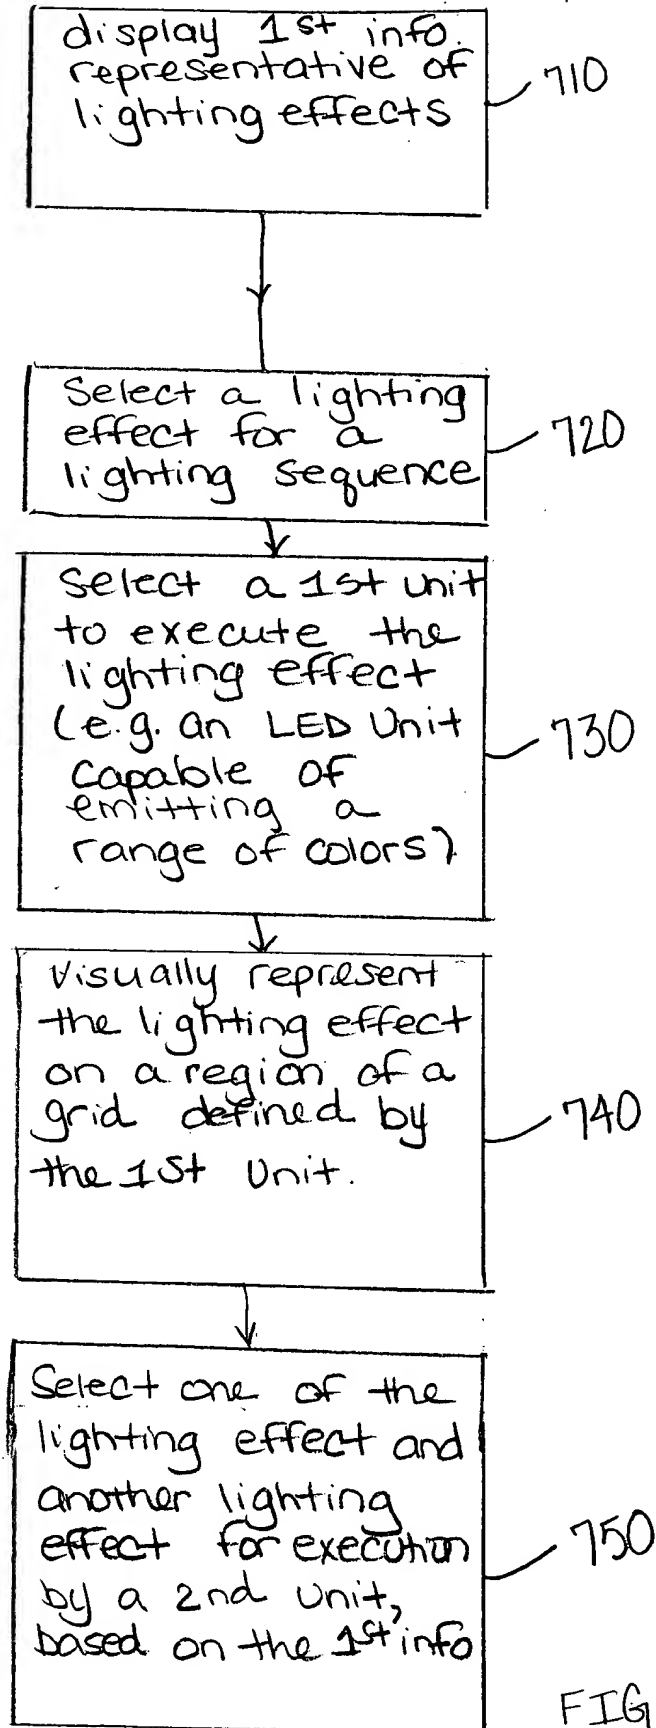 display 1st info.
representative of
lighting effects
710
Select a lighting
effect for a
lighting sequence
720
Select a 1st unit
to execute the
lighting effect
(e.g. an LED Unit
capable of
emitting a
range of colors)
730
Visually represent
the lighting effect
on a region of a
grid defined by
the 1st Unit.
740
Select one of the
lighting effect and
another lighting
effect for execution
by a 2nd Unit,
based on the 1st info
750
FIG